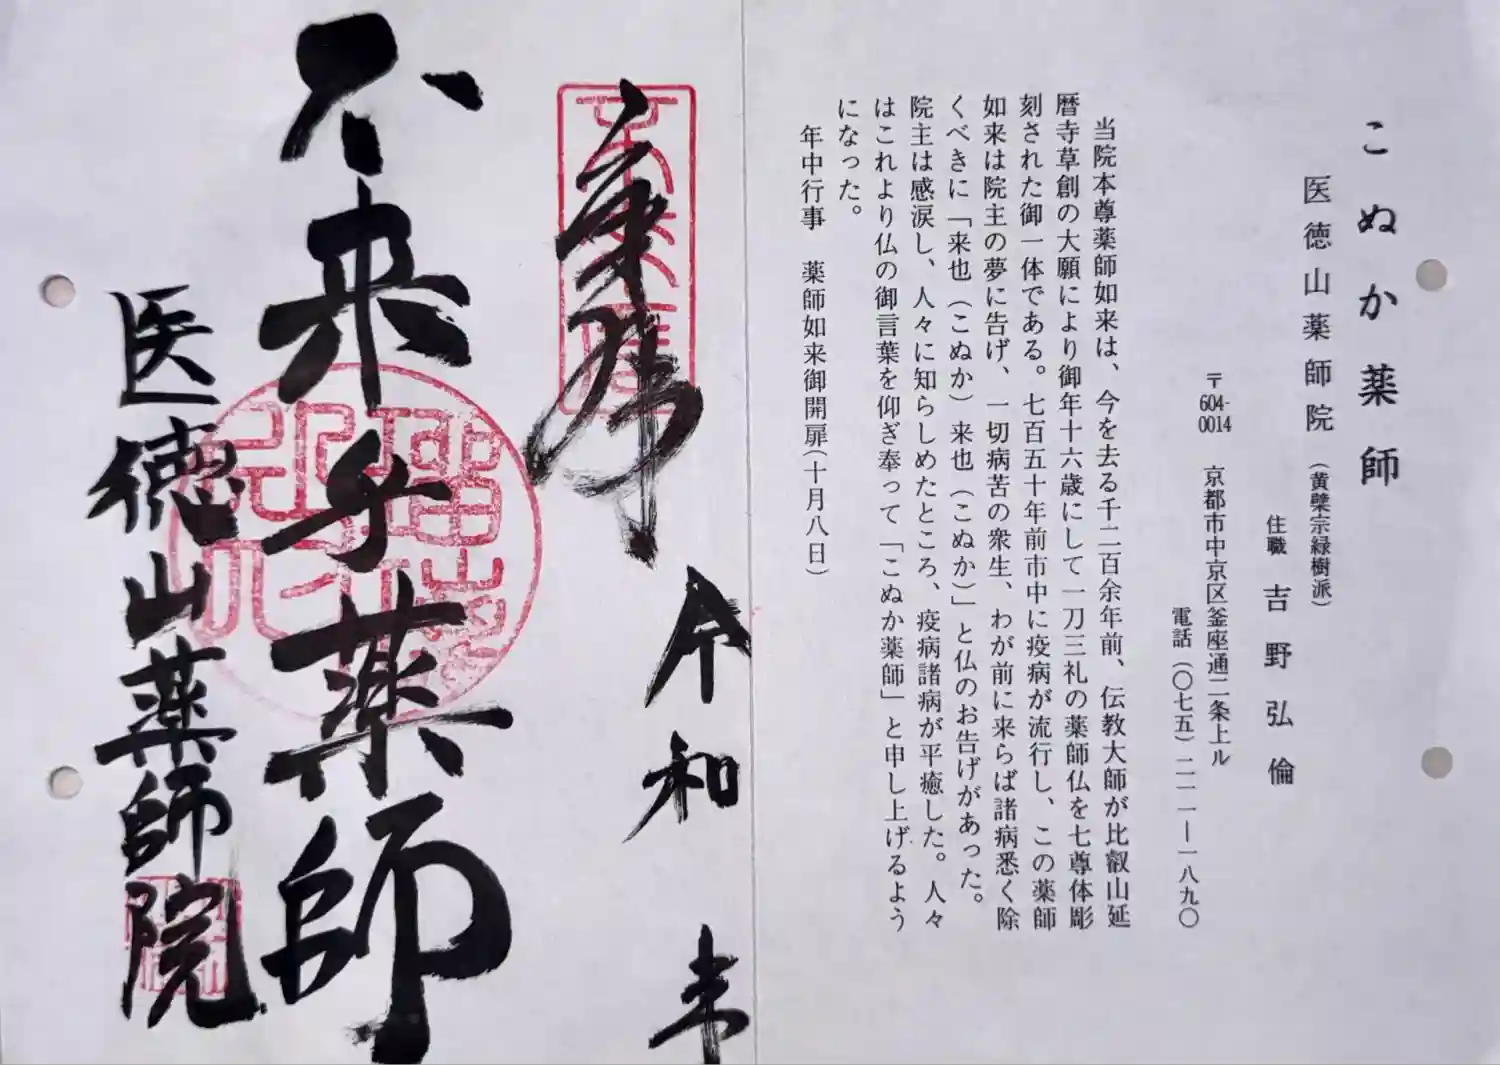 こぬか薬師
医徳山薬師院(黄檗宗緑樹派)
住職 吉野弘倫
〒604-0014 京都市中京区釜座通二条上ル
電話(〇七五)二一一―一八九〇
当院本尊薬師如来は、今を去る千二百余年前、伝教大師が比叡山延
暦寺草創の大願により御年十六歳にして一刀三礼の薬師仏を七尊体彫
刻された御一体である。七百五十年前市中に疫病が流行し、この薬師
如来は院主の夢に告げ、一切病苦の衆生、わが前に来らば諸病悉く除
くべきに「来也(こぬか)来也(こぬか)」と仏のお告げがあった。
院主は感涙し、人々に知らしめたところ、疫病諸病が平癒した。人々
はこれより仏の御言葉を仰ぎ奉って「こぬか薬師」と申し上げるよう
になった。
年中行事 薬師如来御開扉(十月八日)
奉拝
令和 年
不来乎薬師
医徳山薬師院